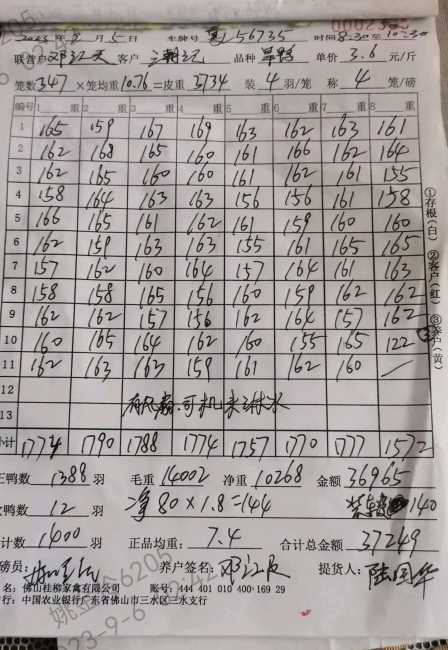 2023年 月5日 车牌号 56735 时间8:30 10:30
联养户邓江天 客户 品种 单价3.6元/斤
笼数347×笼均重10.76=皮重3734 装4羽/笼 称4笼/磅
编号 1 重 2 重 3 重 4 重 5 重 6 重 7 重 8 重
1 165 159 167 169 163 162 163 161
2 162 168 165 160 161 166 162 164
3 162 165 160 160 161 162 161 155
4 158 164 163 163 156 156 161 158
5 166 165 161 162 161 159 160 160
6 162 159 163 163 155 161 165 165
7 157 162 160 164 157 164 161 163
8 158 158 165 156 160 159 162 162
9 162 162 157 156 162 164 157 162
10 160 165 164 162 160 155 165 122
11 162 163 163 159 161 162 160 —
12
13
小计 1774 1790 1788 1774 1757 1770 1777 1572
正鸭数 1388 羽 毛重 14002 净重 10268 金额 36965
鸭数 12 羽 净80×1.8=144 140
合计数 1400 羽 正品均重: 7.4 合计总金额 37249
磅员: 养户签名: 邓江 提货人: 陆国华
名: 佛山桂柳家禽有限公司 账号: 444 401 010 400 169 29
行: 中国农业银行广东省佛山市三水区三水支行
①存根(白) ②客户(红) ③养户(黄)
6205
2023-9-6